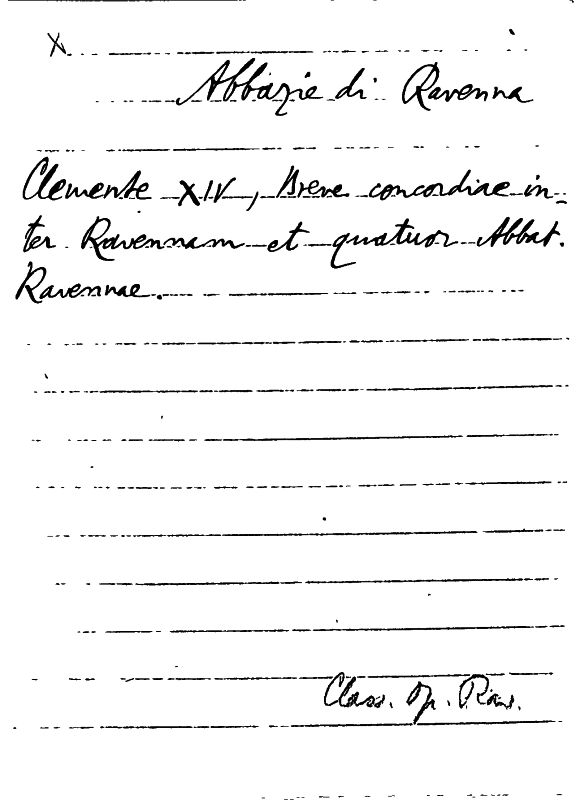 X
Abbazie di Ravenna
Clemente XIV, Breve concordiae in-
ter Ravennam et quatuor Abbat.
Ravennae.
Class. Op. Rav.